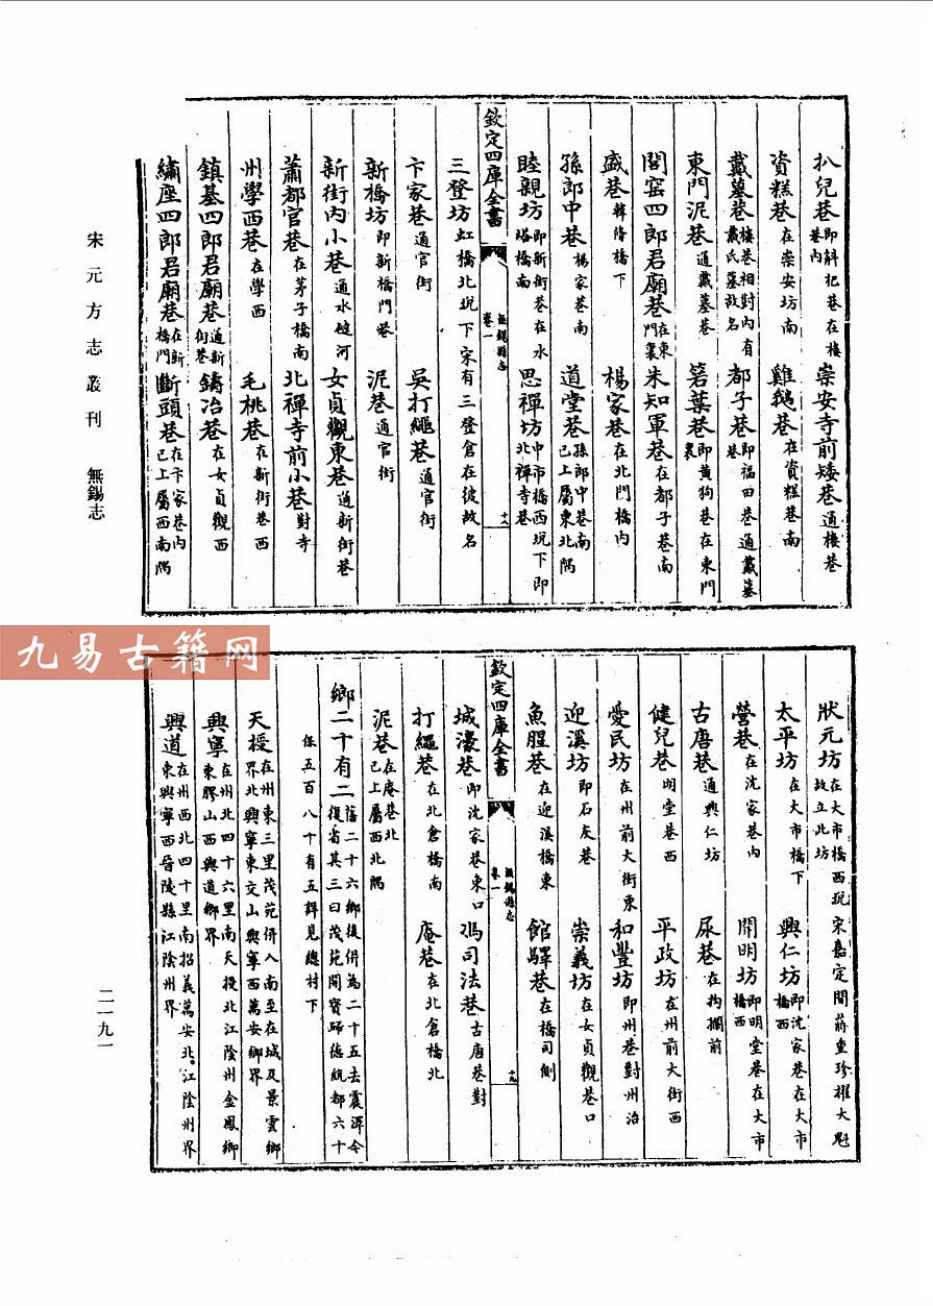 扒兒巷即斜圯巷在樓巷内　崇安寺前矮巷通樓巷
資糕巷在崇安坊南　雞鵝巷在資糕巷南
戴墓巷樓巷相對内有戴氏墓故名　都子巷即福田巷通戴墓巷
東門泥巷通戴墓巷　箬葉巷即黄狗巷在東門裏
閣窑四郎君廟巷在東門裏　朱知軍巷在都子巷南
盛巷韓侍橋下　楊家巷在北門橋内
孫郎中巷楊家巷南　道堂巷孫郎中巷南已上屬東北隅
睦親坊即新街巷在水塔橋南　思禪坊中市橋西堍下即北禪寺巷
欽定四庫全書　無錫縣志卷一　十八
三登坊虹橋北堍下宋有三登倉在彼故名
卞家巷通官街　吳打繩巷通官街
新橋坊即新橋門巷　泥巷通官街
新街内小巷通水碓河　女貞觀東巷通新街巷
蕭都官巷在茅子橋南　北禪寺前小巷對寺
州學西巷在學西　毛桃巷在新街巷西
鎮基四郎君廟巷通新街巷　鑄冶巷在女貞觀西
繡座四郎君廟巷在新橋門　斷頭巷在卞家巷内已上屬西南隅
宋元方志叢刊　無錫志
九易古籍网
狀元坊在大市橋西堍宋嘉定間蔣重珍擢大魁故立此坊
太平坊在大市橋下　興仁坊即沈家巷在大市橋西
營巷在沈家巷内　開明坊即明堂巷在大市橋西
古唐巷通興仁坊　尿巷在拘攔前
健兒巷明堂巷西　平政坊在州前大街西
愛民坊在州前大街東　和豐坊即州巷對州治
迎溪坊即石灰巷　崇義坊在女貞觀巷口
魚腥巷在迎溪橋東　館驛巷在橋司側
欽定四庫全書　無錫縣志卷一　十九
城濠巷即沈家巷東口　馮司法巷古唐巷對
打繩巷在北倉橋南　庵巷在北倉橋北
泥巷在庵巷北已上屬西北隅
鄉二十有二舊二十六鄉後併為二十五去震澤今復省其三曰茂苑開寶歸德統都六十
保五百八十有五詳見總村下
天授在州東三里茂苑併入南至在城及景雲鄉界北興寧東文山興寧西萬安鄉界
興寧在州北四十六里南天授北江陰州金鳳鄉東膠山西興道鄉界
興道在州西北四十里南招義萬安北江陰州界東興寧西晉陵縣江陰州界
二一九一